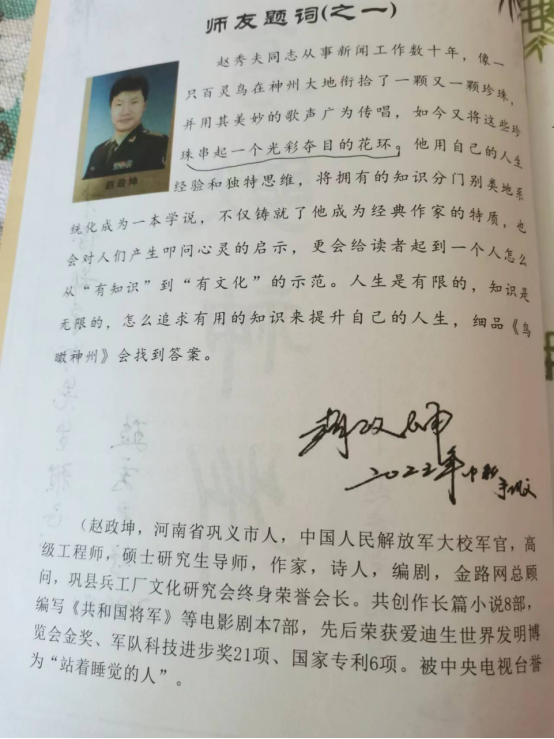 师友题词(之一)
赵秀夫同志从事新闻工作数十年，像一
只百灵鸟在神州大地衔拾了一颗又一颗珍珠，
并用其美妙的歌声广为传唱，如今又将这些珍
珠串起一个光彩夺目的花环。他用自己的人生
经验和独特思维，将拥有的知识分门别类地系
统化成为一本学说，不仅铸就了他成为经典作家的特质，也
会对人们产生叩问心灵的启示，更会给读者起到一个人怎么
从“有知识”到“有文化”的示范。人生是有限的，知识是
无限的，怎么追求有用的知识来提升自己的人生，细品《鸟
瞰神州》会找到答案。
赵政坤
2022年中秋
（赵政坤，河南省巩义市人，中国人民解放军大校军官，高
级工程师，硕士研究生导师，作家，诗人，编剧，金路网总顾
问，巩县兵工厂文化研究会终身荣誉会长。共创作长篇小说8部，
编写《共和国将军》等电影剧本7部，先后荣获爱迪生世界发明博
览会金奖、军队科技进步奖21项、国家专利6项。被中央电视台誉
为“站着睡觉的人”。